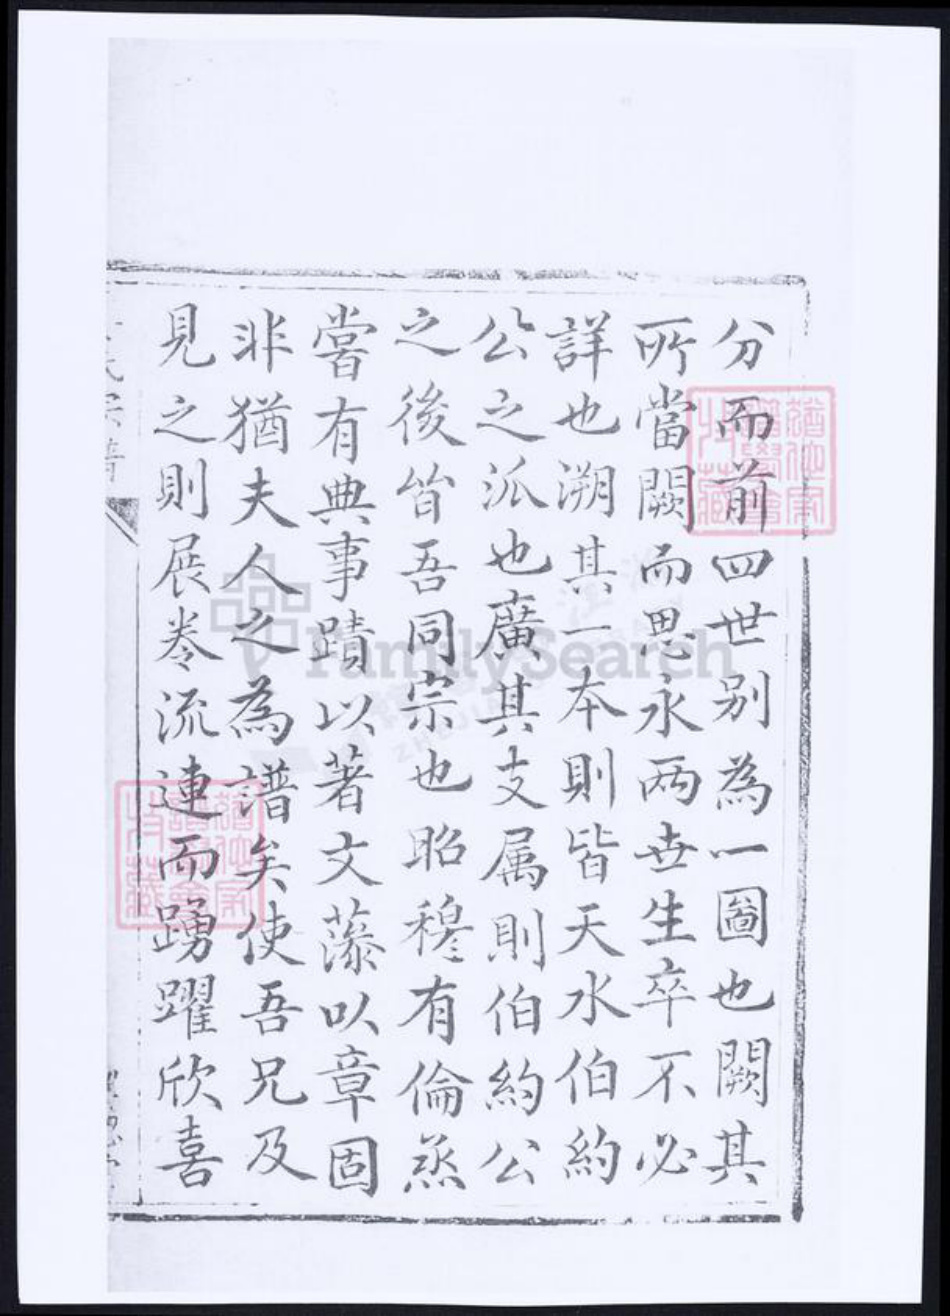 分而前四世别為一圖也闕其
所當闕而思永两世生卒不必
詳也溯其一本則皆天水伯約
公之派也廣其支属則伯約公
之後皆吾同宗也昭穆有倫烝
嘗有典事蹟以著文藻以章固
非猶夫人之為譜矣使吾兄及
見之則展卷流連而踴躍欣喜
氏宗譜
FamilySearch